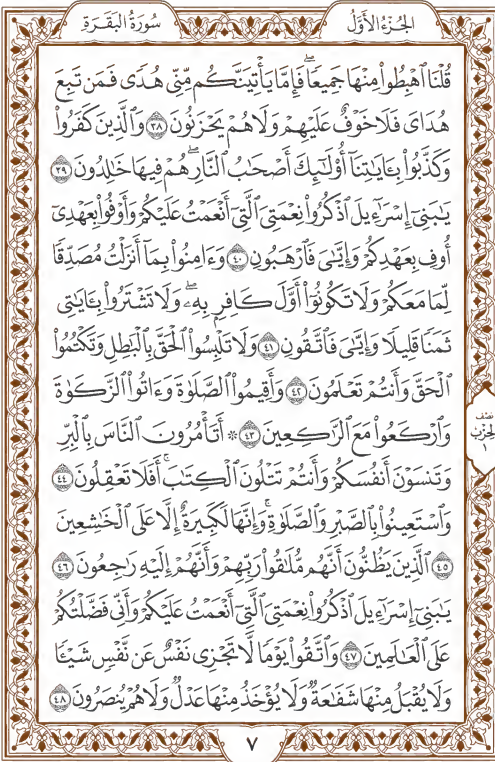 الجُزْءُ الأَوَّلُ
سُورَةُ البَقَرَةِ
قُلْنَا ٱهْبِطُوا۟ مِنْهَا جَمِيعًۭا ۖ فَإِمَّا يَأْتِيَنَّكُم مِّنِّى هُدًۭى فَمَن تَبِعَ
هُدَاىَ فَلَا خَوْفٌ عَلَيْهِمْ وَلَا هُمْ يَحْزَنُونَ ٣٨ وَٱلَّذِينَ كَفَرُوا۟
وَكَذَّبُوا۟ بِـَٔايَـٰتِنَآ أُو۟لَـٰٓئِكَ أَصْحَـٰبُ ٱلنَّارِ ۖ هُمْ فِيهَا خَـٰلِدُونَ ٣٩
يَـٰبَنِىٓ إِسْرَٰٓءِيلَ ٱذْكُرُوا۟ نِعْمَتِىَ ٱلَّتِىٓ أَنْعَمْتُ عَلَيْكُمْ وَأَوْفُوا۟ بِعَهْدِىٓ
أُوفِ بِعَهْدِكُمْ وَإِيَّـٰىَ فَٱرْهَبُونِ ٤٠ وَءَامِنُوا۟ بِمَآ أَنزَلْتُ مُصَدِّقًۭا
لِّمَا مَعَكُمْ وَلَا تَكُونُوٓا۟ أَوَّلَ كَافِرٍۭ بِهِۦ ۖ وَلَا تَشْتَرُوا۟ بِـَٔايَـٰتِى
ثَمَنًۭا قَلِيلًۭا وَإِيَّـٰىَ فَٱتَّقُونِ ٤١ وَلَا تَلْبِسُوا۟ ٱلْحَقَّ بِٱلْبَـٰطِلِ وَتَكْتُمُوا۟
ٱلْحَقَّ وَأَنتُمْ تَعْلَمُونَ ٤٢ وَأَقِيمُوا۟ ٱلصَّلَوٰةَ وَءَاتُوا۟ ٱلزَّكَوٰةَ
وَٱرْكَعُوا۟ مَعَ ٱلرَّٰكِعِينَ ٤٣ ۞ أَتَأْمُرُونَ ٱلنَّاسَ بِٱلْبِرِّ
وَتَنسَوْنَ أَنفُسَكُمْ وَأَنتُمْ تَتْلُونَ ٱلْكِتَـٰبَ ۚ أَفَلَا تَعْقِلُونَ ٤٤
وَٱسْتَعِينُوا۟ بِٱلصَّبْرِ وَٱلصَّلَوٰةِ ۚ وَإِنَّهَا لَكَبِيرَةٌ إِلَّا عَلَى ٱلْخَـٰشِعِينَ
٤٥ ٱلَّذِينَ يَظُنُّونَ أَنَّهُم مُّلَـٰقُوا۟ رَبِّهِمْ وَأَنَّهُمْ إِلَيْهِ رَٰجِعُونَ ٤٦
يَـٰبَنِىٓ إِسْرَٰٓءِيلَ ٱذْكُرُوا۟ نِعْمَتِىَ ٱلَّتِىٓ أَنْعَمْتُ عَلَيْكُمْ وَأَنِّى فَضَّلْتُكُمْ
عَلَى ٱلْعَـٰلَمِينَ ٤٧ وَٱتَّقُوا۟ يَوْمًۭا لَّا تَجْزِى نَفْسٌ عَن نَّفْسٍۢ شَيْـًۭٔا
وَلَا يُقْبَلُ مِنْهَا شَفَـٰعَةٌۭ وَلَا يُؤْخَذُ مِنْهَا عَدْلٌۭ وَلَا هُمْ يُنصَرُونَ ٤٨
نِصْف
الحِزْبِ
١
٧